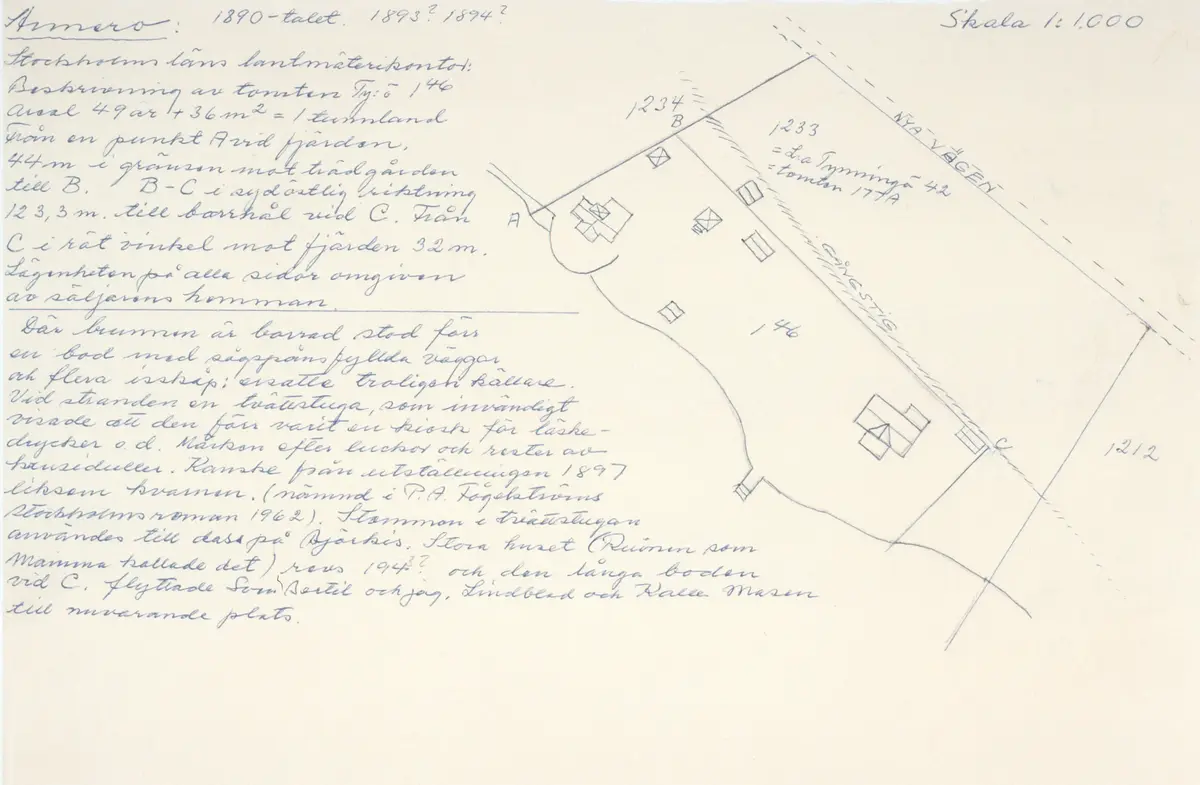 Armero: 1890-talet. 1893? 1894?
Stockholms läns lantmäterikontor:
Beskrivning av tomten Ty:ö 146
Areal 49 ar + 36 m² = 1 tunnland
Från en punkt A vid fjärden,
44 m i gränsen mot trädgården
till B. B-C i sydöstlig riktning
123,3 m. till borrhål vid C. Från
C i rät vinkel mot fjärden 32 m.
Lägenheten på alla sidor omgiven
av säljarens hemman.
Där brunnen är borrad stod förr
en bod med sågspånsfyllda väggar
och flera isskåp; ersatte troligen källare.
Vid stranden en tvättstuga, som invändigt
visade att den förr varit en kiosk för läske-
drycker o.d. Märken efter luckor och rester av
krusiduller. Kanske från utställningen 1897
liksom kvarnen. (nämnd i P.A. Fogelströms
Stockholmsroman 1962). Stommen i tvättstugan
användes till dass på Björkis. Stora huset (Ruinen som
Mamma kallade det) revs 194?? och den långa boden
vid C. flyttade Sven Bertil och jag, Lindblad och Kalle Masen
till nuvarande plats.
Skala 1:1.000
1234
B
1233
= L:a Tynningö 42
= tomten 177A
NYA VÄGEN
A
GÅNGSTIG
146
C
1212